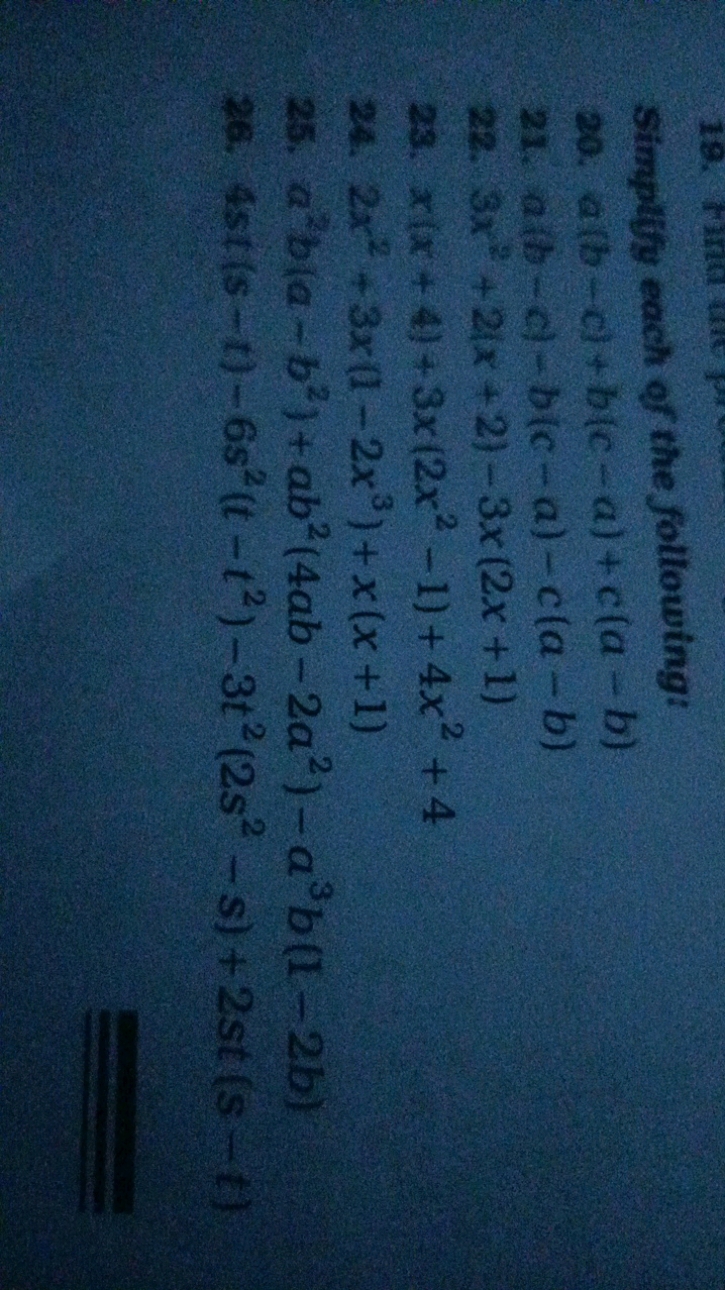 19.
Simplify each of the following:
20. a(b − c) + b(c − a) + c(a − b)
21. a(b − c) − b(c − a) − c(a − b)
22. 3x² + 2(x + 2) − 3x(2x + 1)
23. x(x + 4) + 3x(2x² − 1) + 4x² + 4
24. 2x² + 3x(1 − 2x³) + x(x + 1)
25. a²b(a − b²) + ab²(4ab − 2a²) − a³b(1 − 2b)
26. 4st(s − t) − 6s²(t − t²) − 3t²(2s² − s) + 2st(s − t)